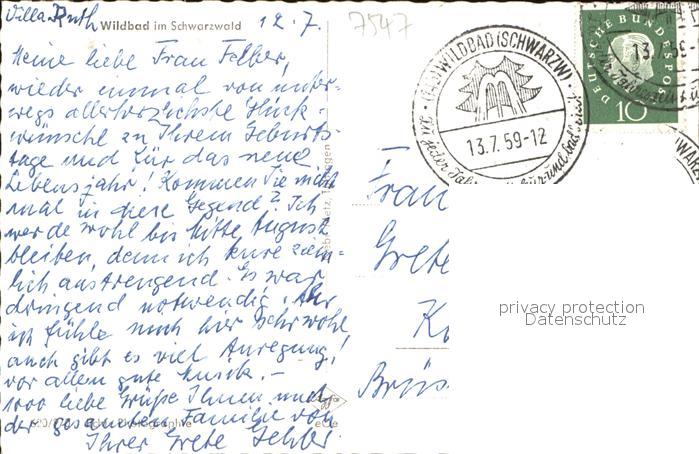 Villa Ruth Wildbad im Schwarzwald 12.7.
7547
Meine liebe Frau Felber,
wieder einmal von unter-
wegs allerherzlichste Glück-
wünsche zu Ihrem Geburts-
tage und für das neue
Lebensjahr! Kommen Sie nicht
mal in diese Gegend? Ich
werde wohl bis Mitte August
bleiben, denn ich kure ziem-
lich anstrengend. Es war
dringend notwendig. Aber
ich fühle mich hier sehr wohl,
auch gibt es viel Anregung,
vor allem gute Musik. –
1000 liebe Grüße Ihnen und
der gesamten Familie von
Ihrer Grete
WILDBAD (SCHWARZW)
13.7.59-12
zu jeder
DEUTSCHE BUNDESPOST
10
13.7.59-
Frau
Grete
privacy protection
Datenschutz